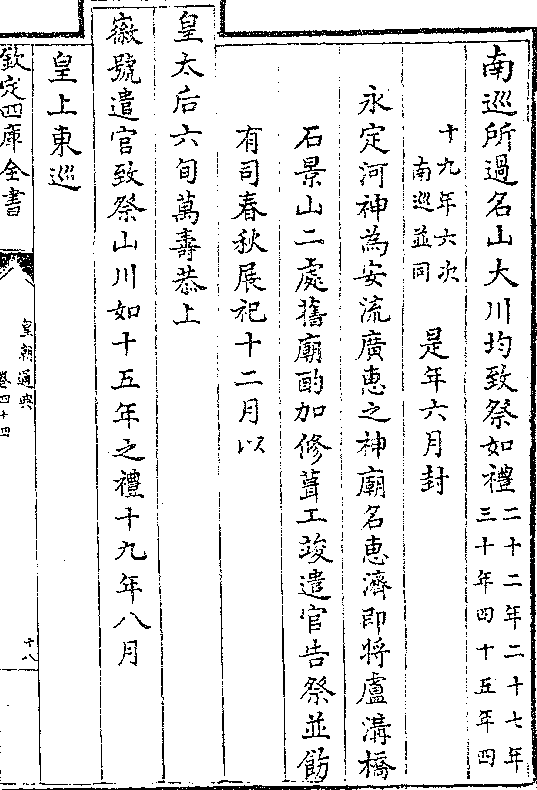 南巡所過名山大川均致祭如禮二十二年二十七年三十年四十五年四
十九年六次南巡並同　是年六月封
永定河神為安流廣惠之神廟名惠濟即將盧溝橋
石景山二處舊廟酌加修葺工竣遣官告祭並飭
有司春秋展祀十二月以
皇太后六旬萬壽恭上
徽號遣官致祭山川如十五年之禮十九年八月
皇上東巡
欽定四庫全書
皇朝通典
卷四十四
十八